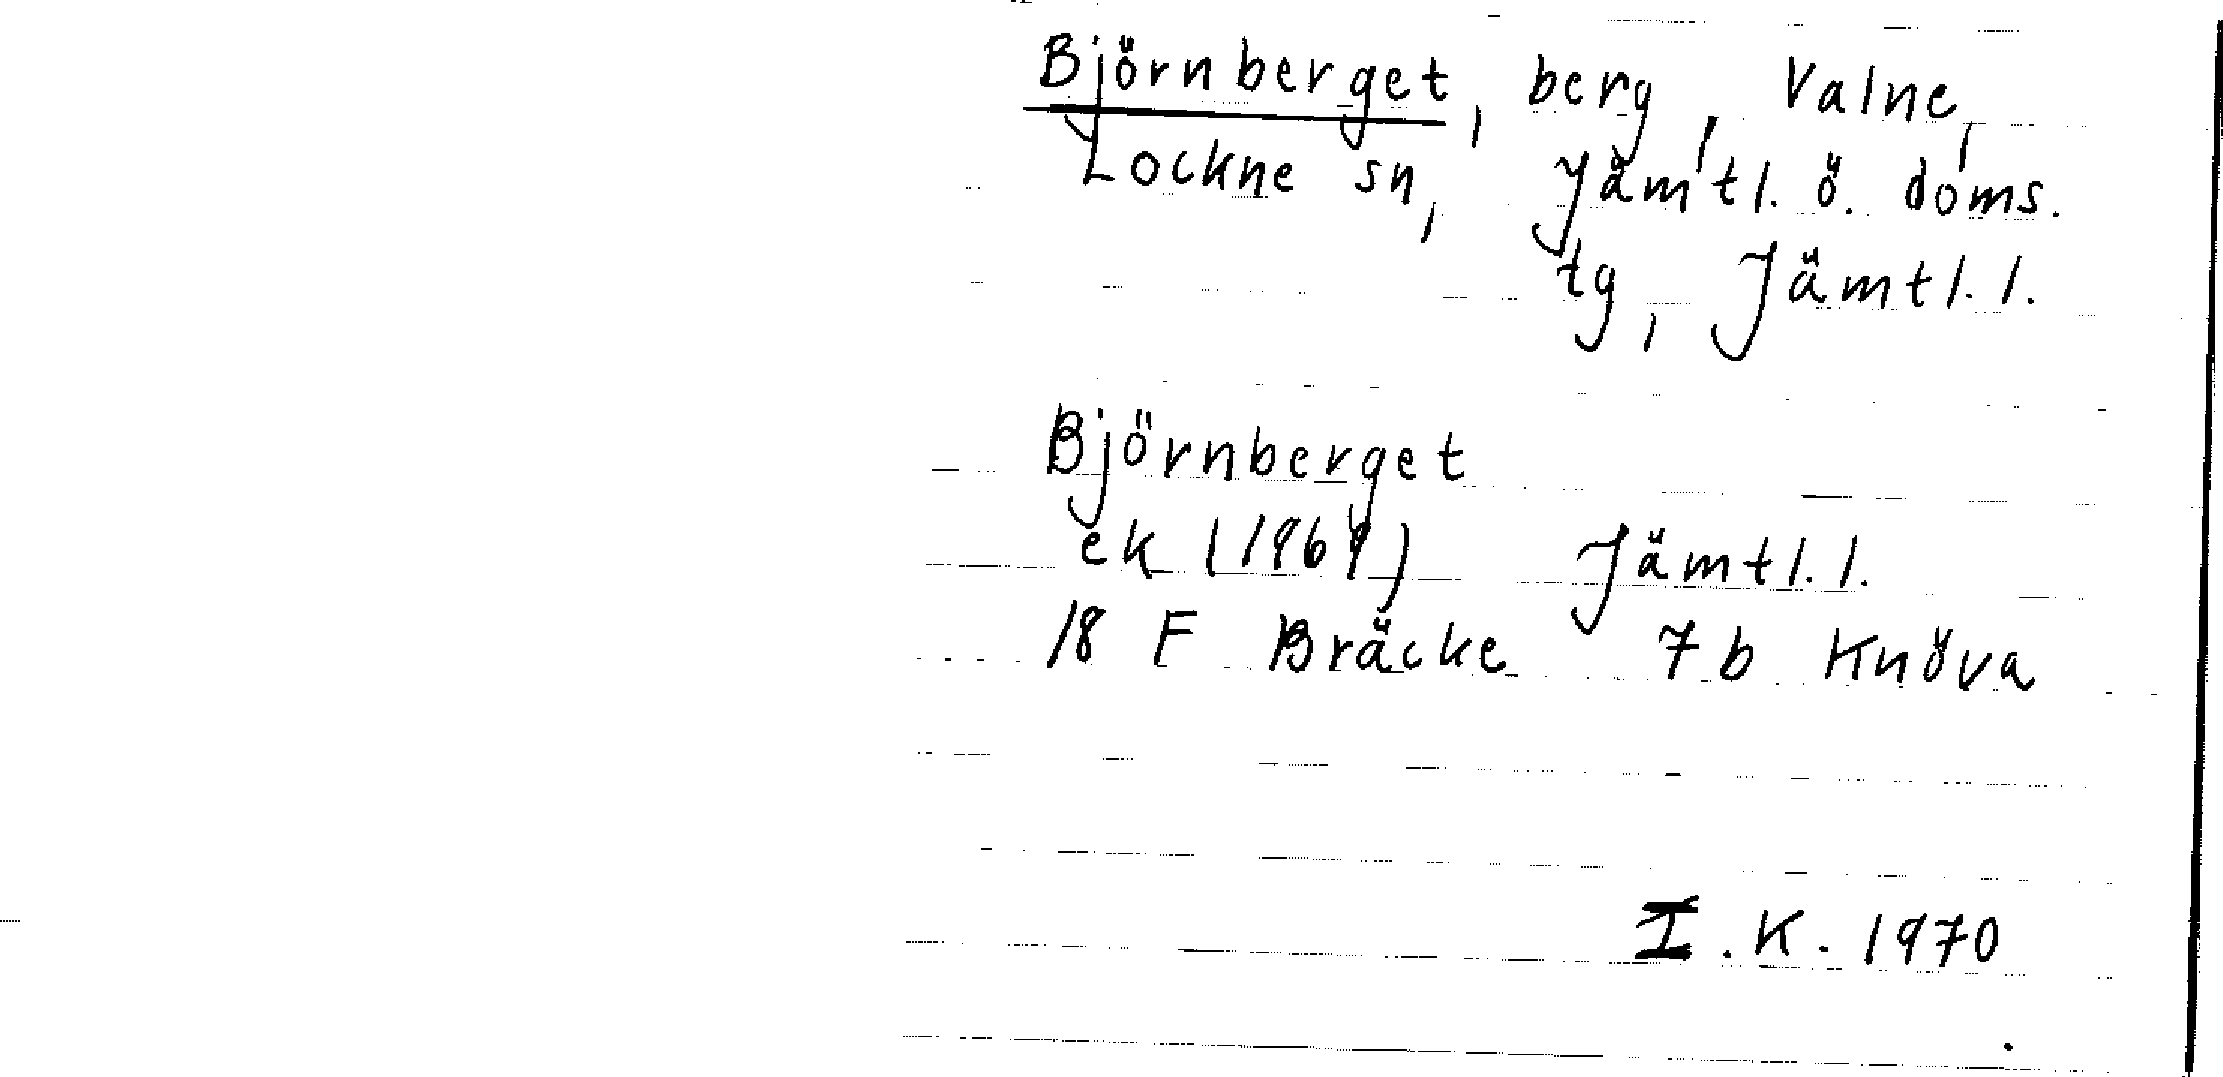 Björnberget, berg, Valne,
Lockne sn, Jämtl. ö. doms.
tg, Jämtl. l.
Björnberget
ek (1969) Jämtl. l.
18 F Bräcke 7 b Knöva
I. K. 1970